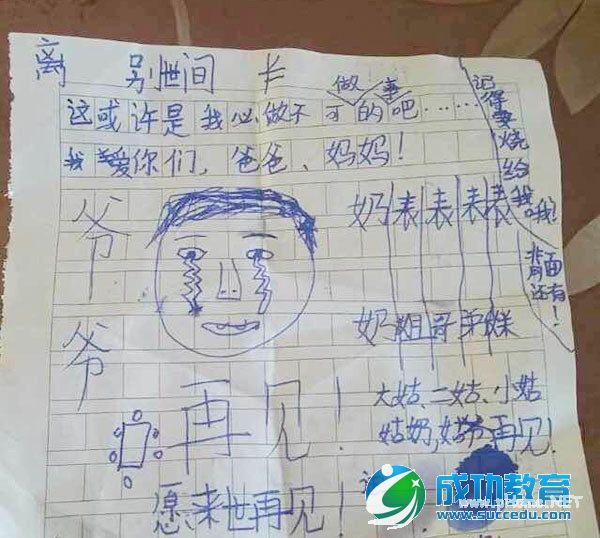 离别世间卡
这或许是我必做不可的事吧……
我爱你们,爸爸、妈妈!
记得要烧给我哦!
背面还有!
爷爷
奶奶
表姐
表哥
表弟
表妹
再见!
大姑、二姑、小姑
姑奶,姑爷再见!
愿来世再见!
成功教育
www.succedu.com